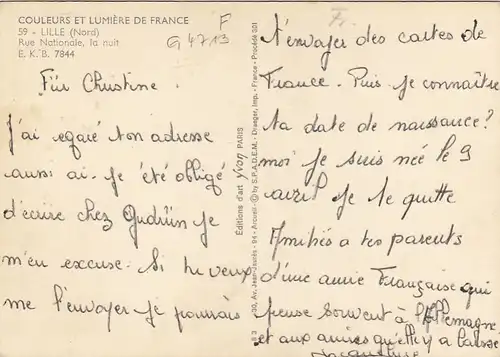 COULEURS ET LUMIÈRE DE FRANCE
59 - LILLE (Nord)
Rue Nationale, la nuit
E. K. B. 7844
F
G 4713
Für Christine.
J'ai egaré ton adresse
aussi ai-je été obligé
d'écrire chez Gudrün je
m'en excuse. Si tu veux
me l'envoyer je pourrais
Editions d'art yvon PARIS
Av. Jean-Jaurès - 94 - Arcueil - © by S.P.A.D.E.M. - Draeger, Imp. - France - Procédé 301
Fr.
t'envoyer des cartes de
France. Puis je connaître
ta date de naissance?
moi je suis née le 9
avril je te quitte
Amitiés a tes parents
d'une amie Française qui
pense souvent à l'Allemagne
et aux amies qu'elle y a laissé
Jacqueline